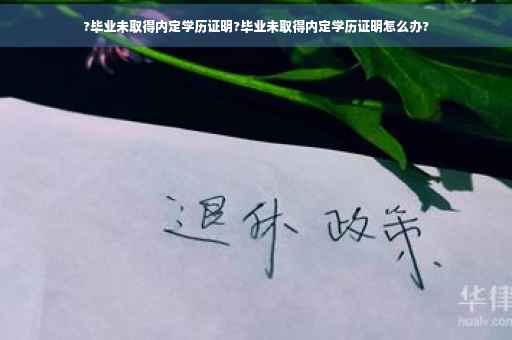 ?毕业未取得内定学历证明?毕业未取得内定学历证明怎么办?
退休 政策
华律
hualv.com